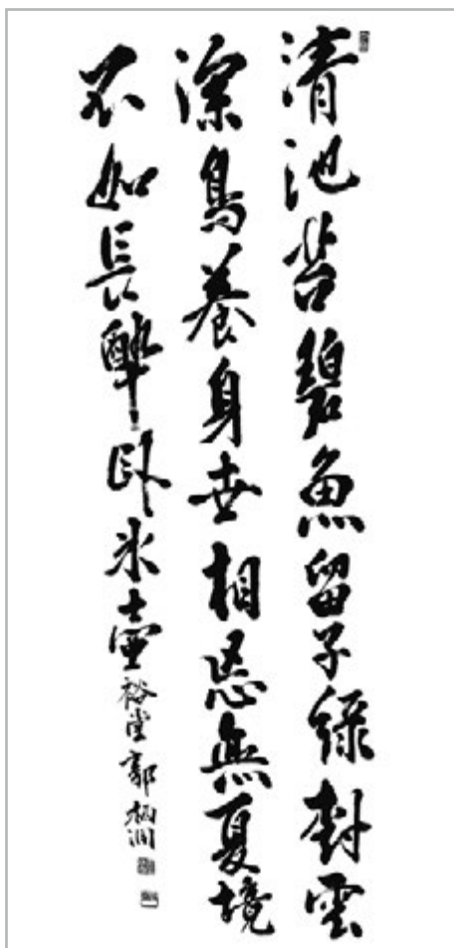 清池苔碧魚留子綠樹雲
深鳥養身世相忘無夏境
不如長醉臥氷壺 裕堂 郭